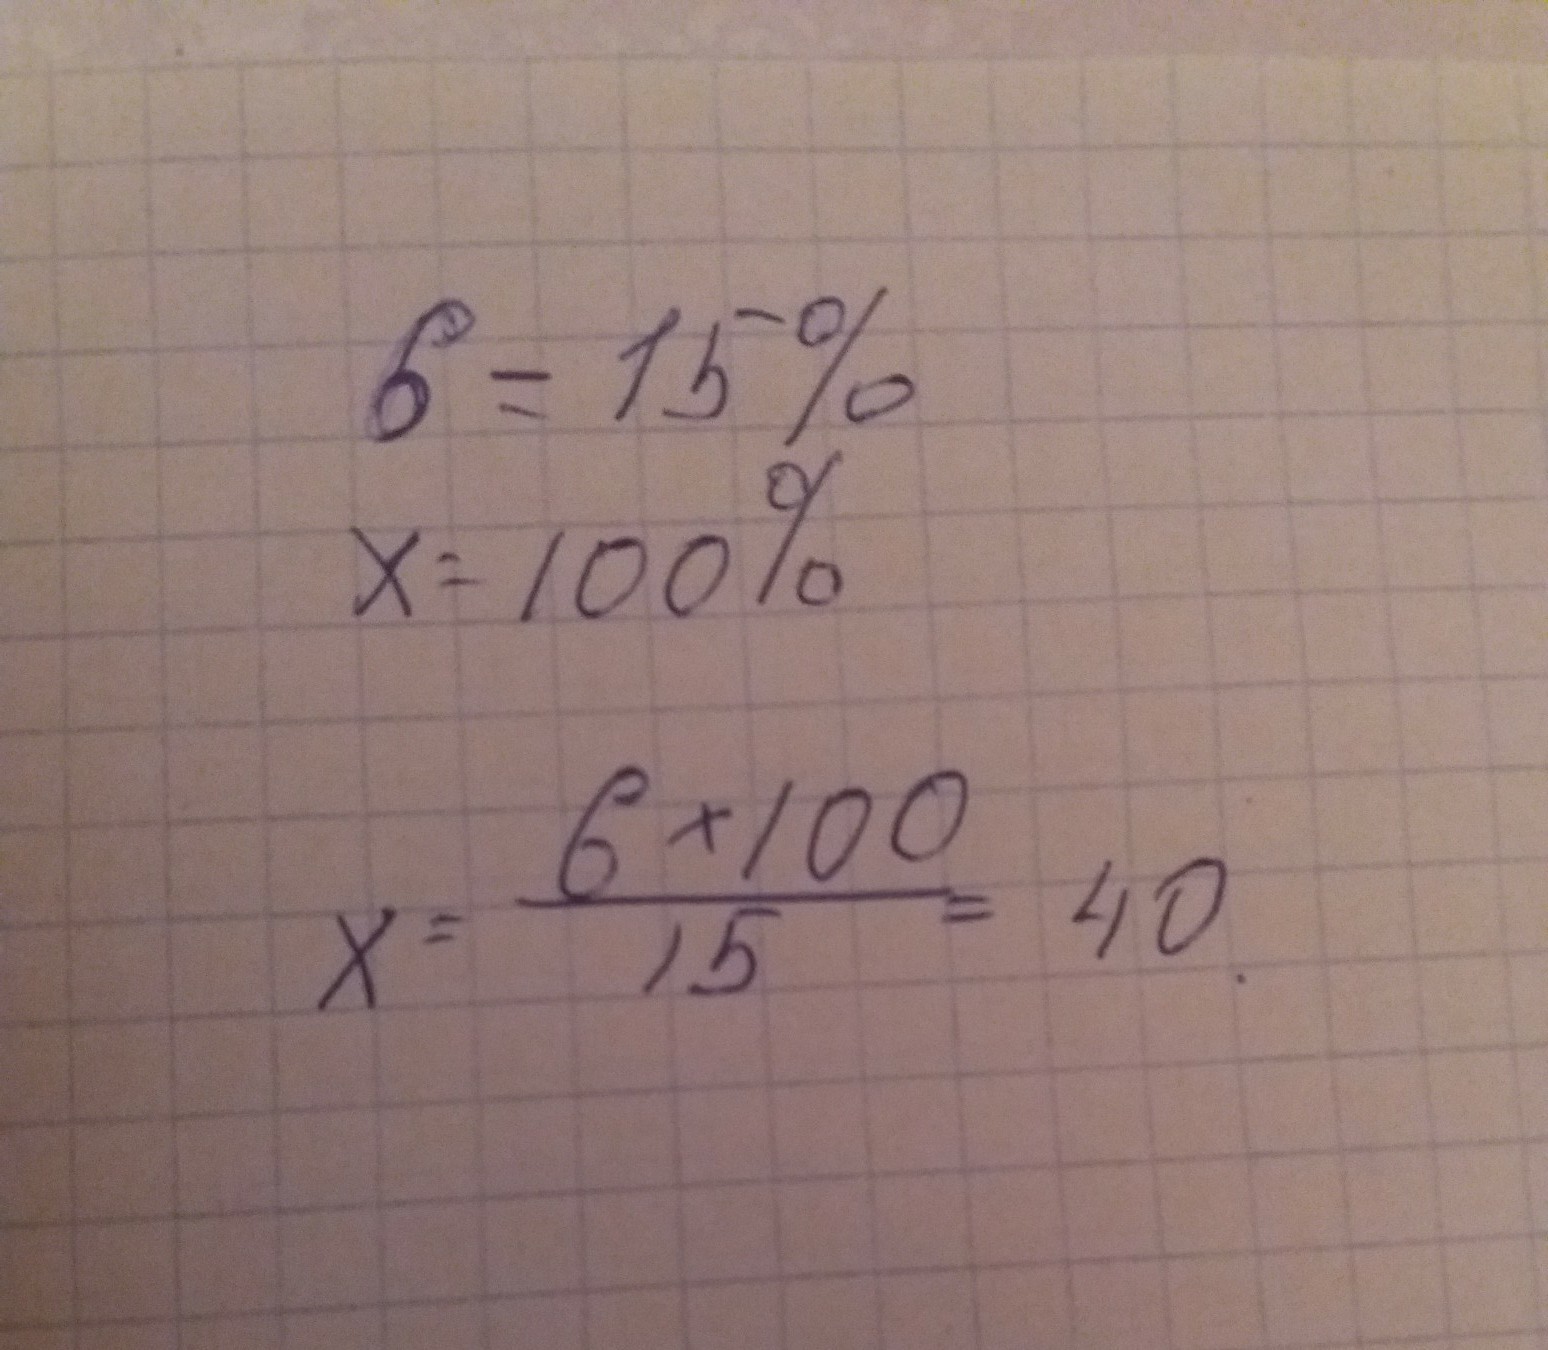 6 = 15%
x = 100%
x = 6 × 100 / 15 = 40.